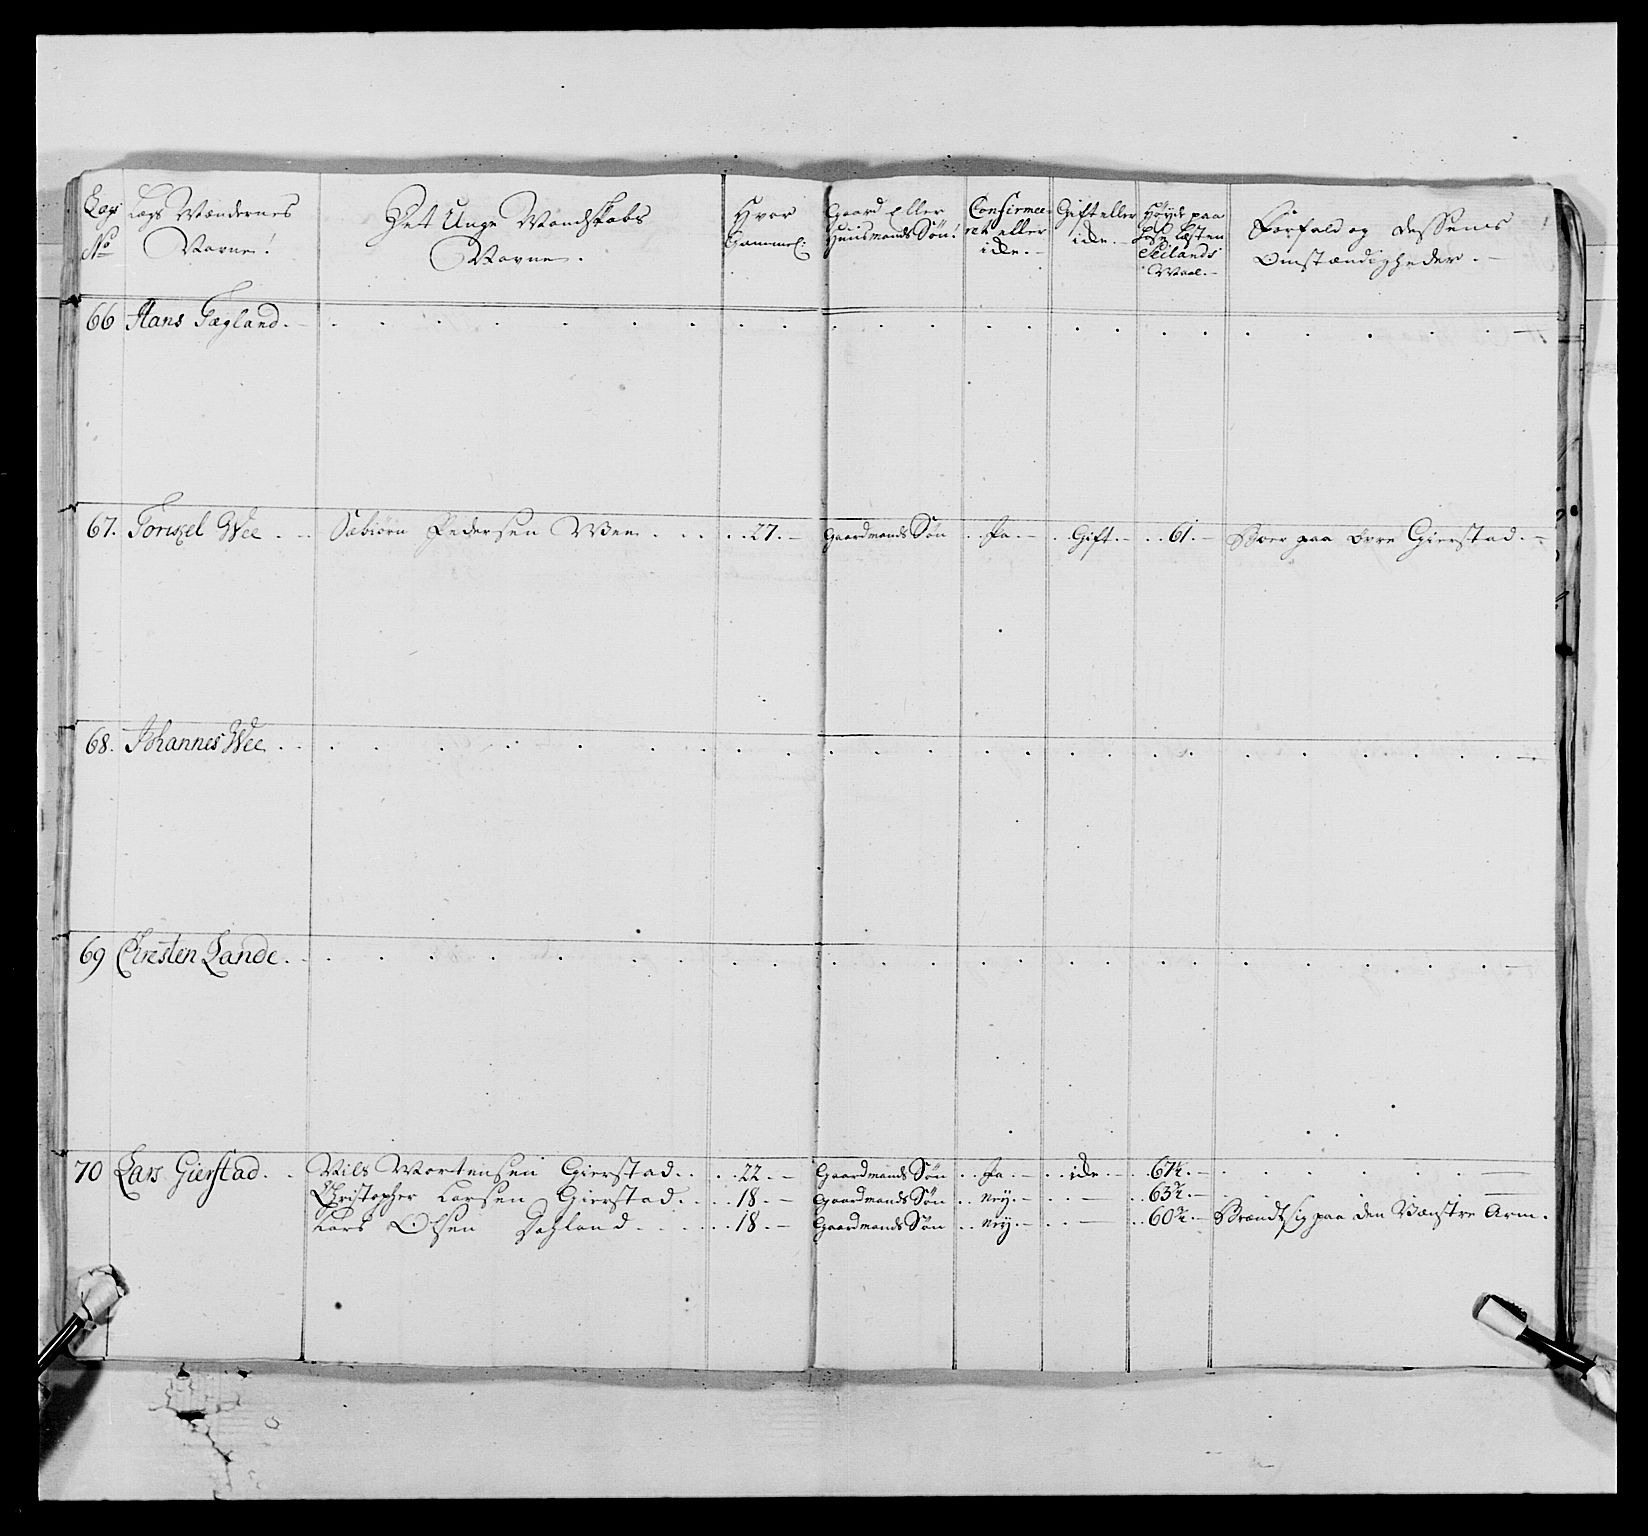 Lægs No
Lægs Mændernes Navne!
Det Unge Mandskabs Navne.
Hvor Gammel:
Gaard Eller Huusmands Søn!
Confirmeeret eller icke.
Gift eller icke.
Høyde paa Læsten Seilands Maal.
Forfald og dessens Omstændigheder.
66 Hans Fægland.
67. Torkel Wee Sæbiørn Pedersen Wee 27. Gaardmands Søn Ja. Gift. 61. Boer paa Øvre Gierstad.
68. Johannes Wee
69 Christen Lande.
70 Lars Gierstad. Nils Mortensen Gierstad. 22. Gaardmands Søn Ja. icke. 67½.
Christopher Larsen Gierstad. 18. Gaardmands Søn Ney. 63¾.
Lars Olsen 18. Gaardmands Søn Ney. 60¾. Brændt sig paa den Venstre Arm.